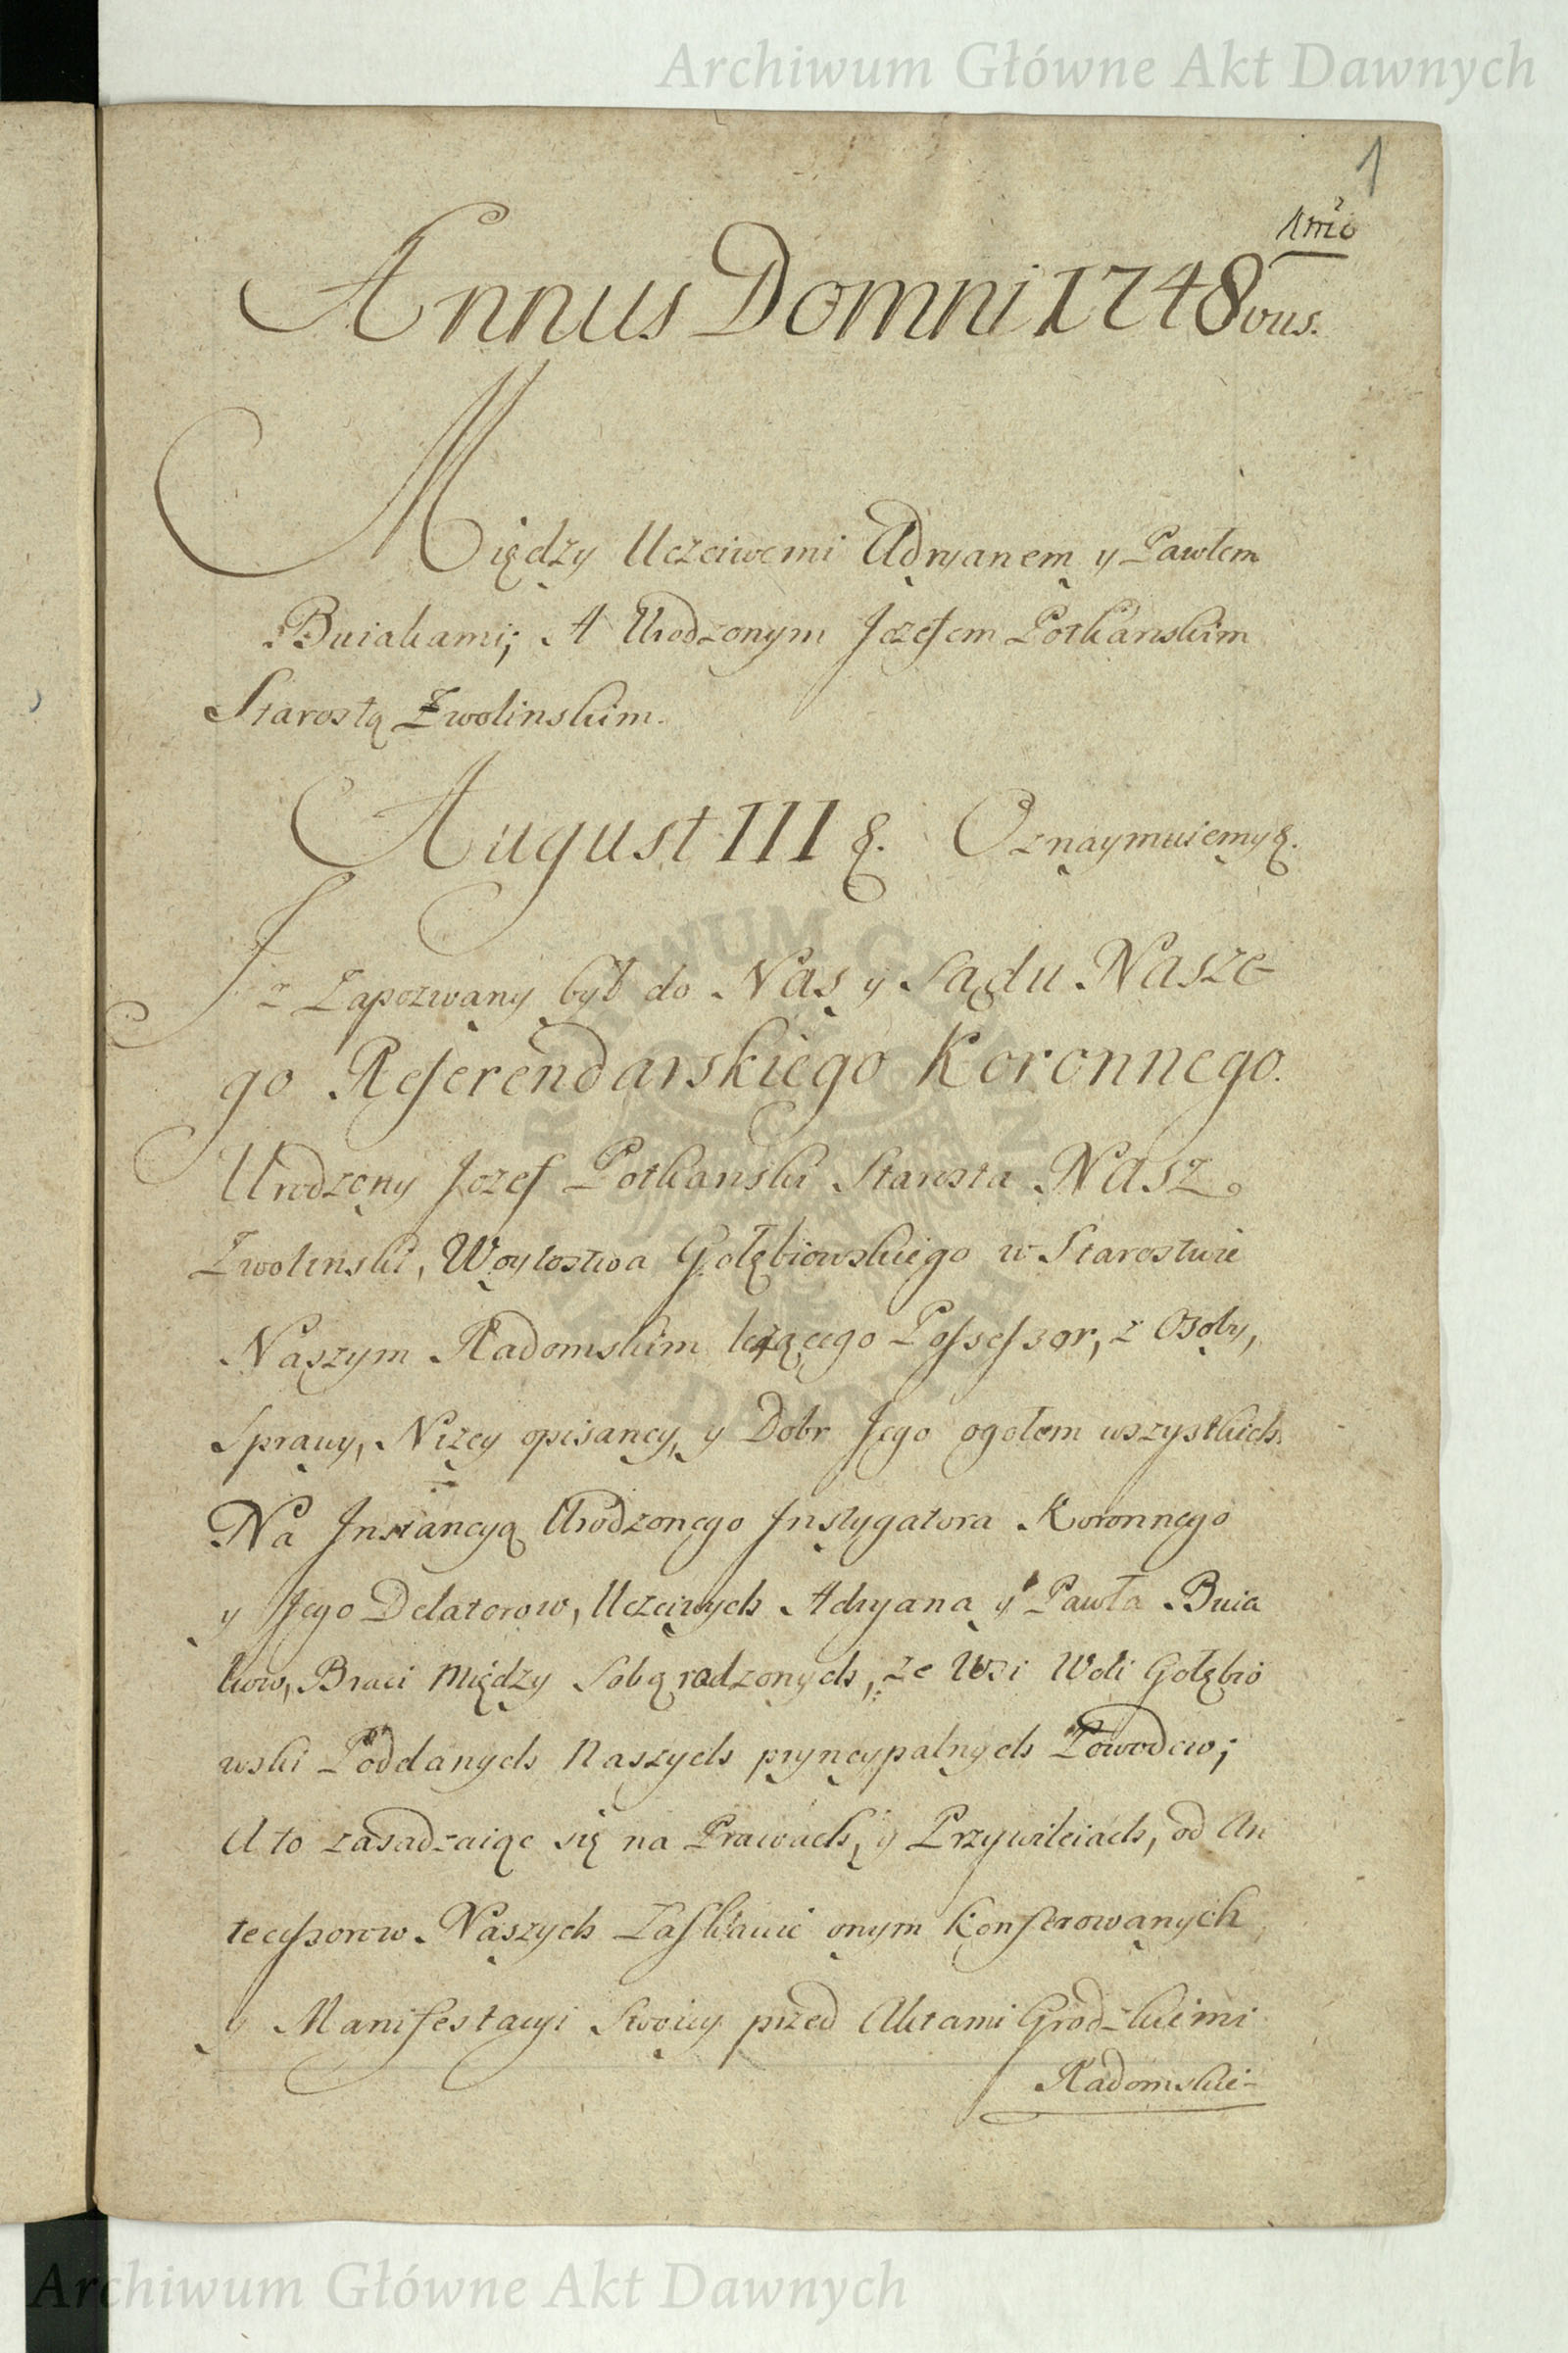 Archiwum Główne Akt Dawnych
1
Annus Domni 1748vus.
Między Uczciwemi Adryanem y Pawłem
Buiakami; A Urodzonym Jozefem Potkanskim
Starostą Zwolinskim.
August III &. Oznaymuiemy &.
Iz Zapozwany był do Nas y Sądu Nasze-
go Referendarskiego Koronnego.
Urodzony Jozef Potkanski Starosta Nasz
Zwolinski, Woytostwa Gołębiowskiego w Starostwie
Naszym Radomskim leżącego Possessor, z Osoby,
Sprawy, Nizey opisaney, y Dobr Jego ogołem wszystkich.
Na Instancyą Urodzonego Instygatora Koronnego
y Jego Delatorow, Uczciwych Adryana y Pawła Buia
kow, Braci Między Sobą rodzonych, ze Wsi Woli Gołębio
wski Poddanych Naszych pryncypalnych Powodow;
A to zasadzaiąc się na Prawach, y Przywileiach, od An
tecessorow Naszych Łaskawie onym konferowanych
y Manifestacyi Swoiey przed Aktami Grodzkiemi
Radomskie-
Archiwum Główne Akt Dawnych